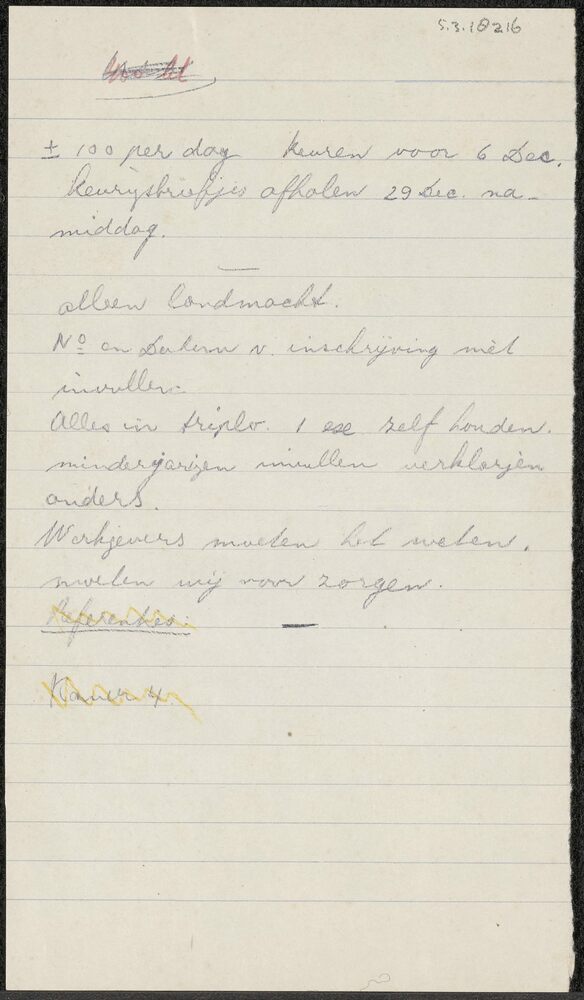 5.3.18216
± 100 per dag keuren voor 6 Dec.
Keuringsbriefjes afhalen 29 Dec. na-
middag.
alleen landmacht.
No en Datum v. inschrijving niet
invullen
Alles in triplo. 1 exe zelf houden.
minderjarigen invullen verklarjen
ouders.
Werkgevers moeten het weten,
moeten wij voor zorgen.
Referenties:
Kamer 4.